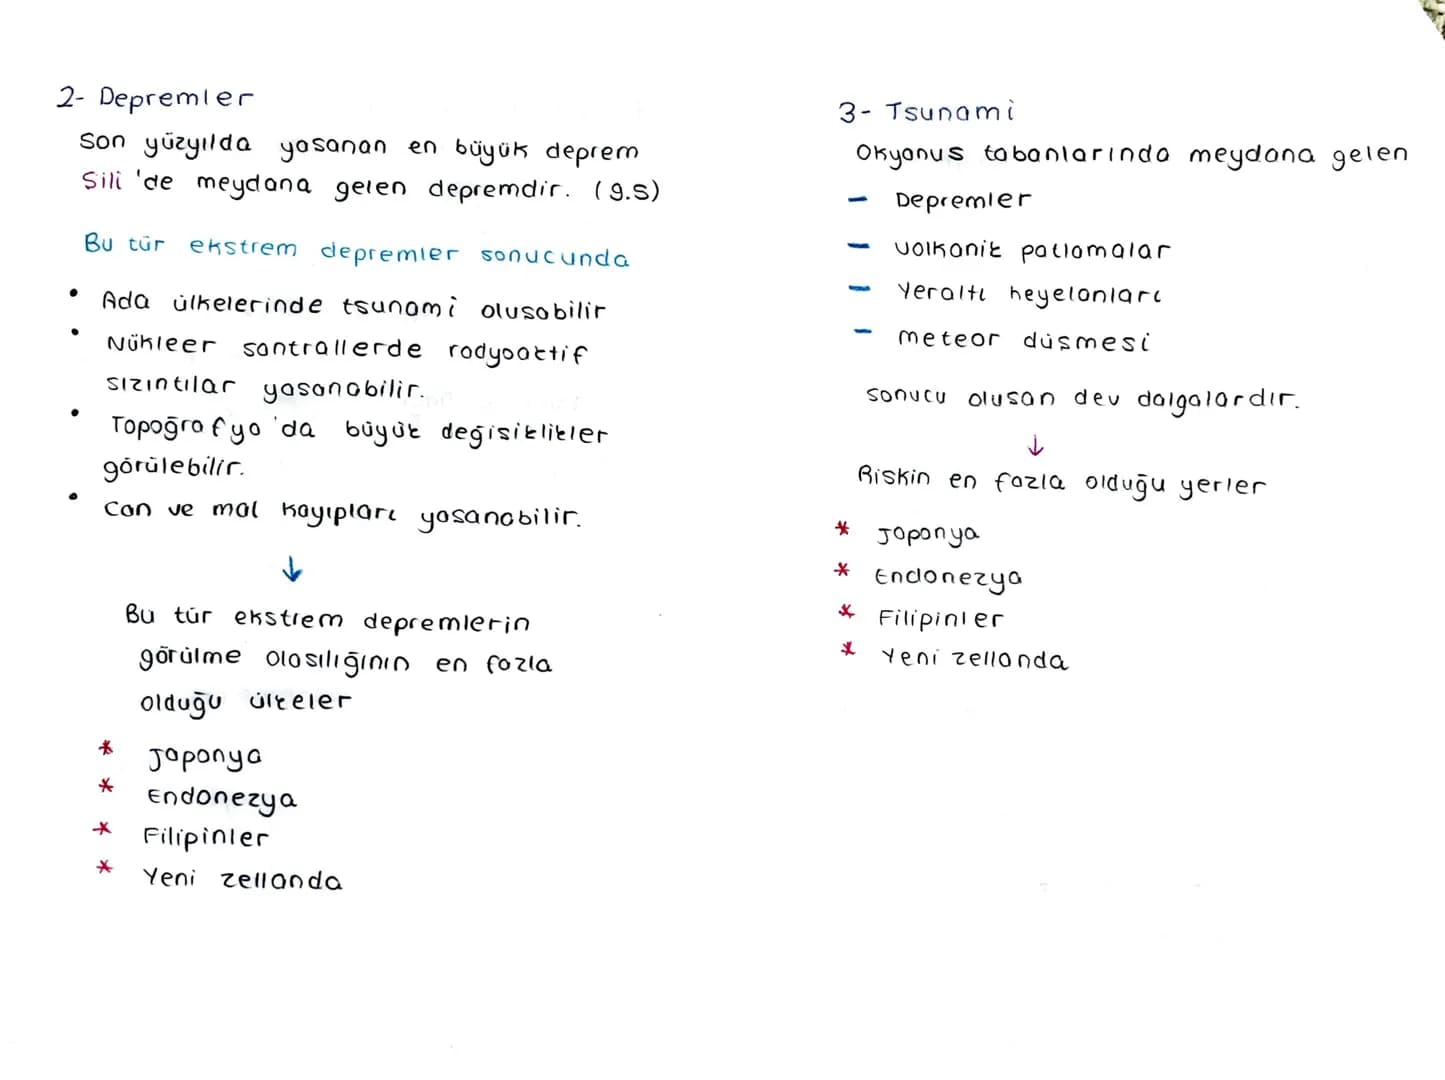 2- Depremler
Son yüzyılda yasanan en büyük deprem
Sili 'de meydana gelen depremdir. (9.5)
Bu tür ekstrem depremler sonucunda
• Ada ülkelerinde tsunami olusabilir
• Nükleer santrallerde radyoaktif
sızıntılar yasanabilir.
• Topoğrafya 'da büyük değisiklikler
görülebilir.
• Can ve mal kayıpları yasanabilir.
↓
Bu tür ekstrem depremlerin
görülme olasılığının en fazla
olduğu ülkeler
* Japonya
* Endonezya
* Filipinler
* Yeni zellanda
3- Tsunami
Okyanus tabanlarında meydana gelen
- Depremler
- volkanik patlamalar
- Yeraltı heyelanları
- meteor düsmesi
sonucu olusan dev dalgalardır.
↓
Riskin en fazla olduğu yerler
* Japonya
* Endonezya
* Filipinler
* Yeni zellanda